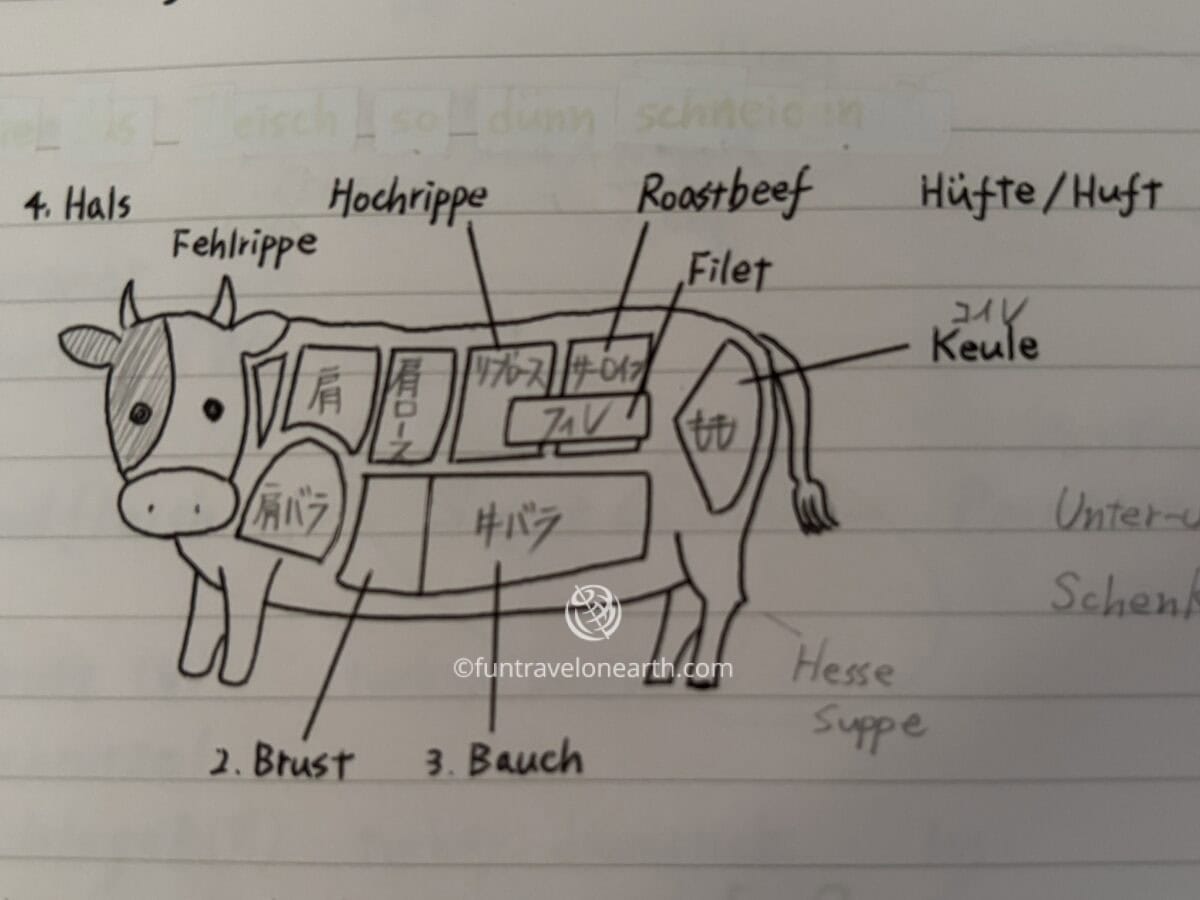 so dünn schneiden
4. Hals
Hochrippe
Roastbeef
Hüfte/Huft
Fehlrippe
Filet
コイレ
Keule
肩
肩ロース
リブロース
サーロイン
フィレ
もも
肩バラ
牛バラ
Schenk
Hesse
Suppe
©funtravelonearth.com
2. Brust
3. Bauch